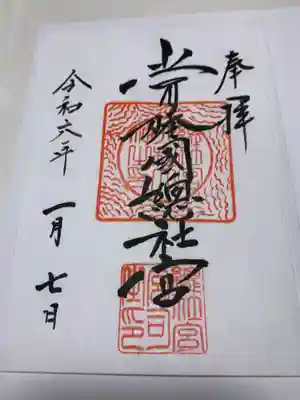 奉拝
常陸國總社宮
令和六年
一月
七日